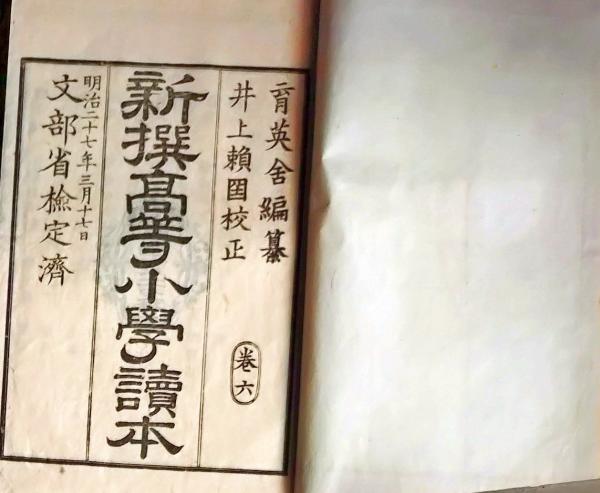 育英舍編纂
井上賴囶校正
卷六
新撰高等小學讀本
明治二十七年三月十七日
文部省檢定濟